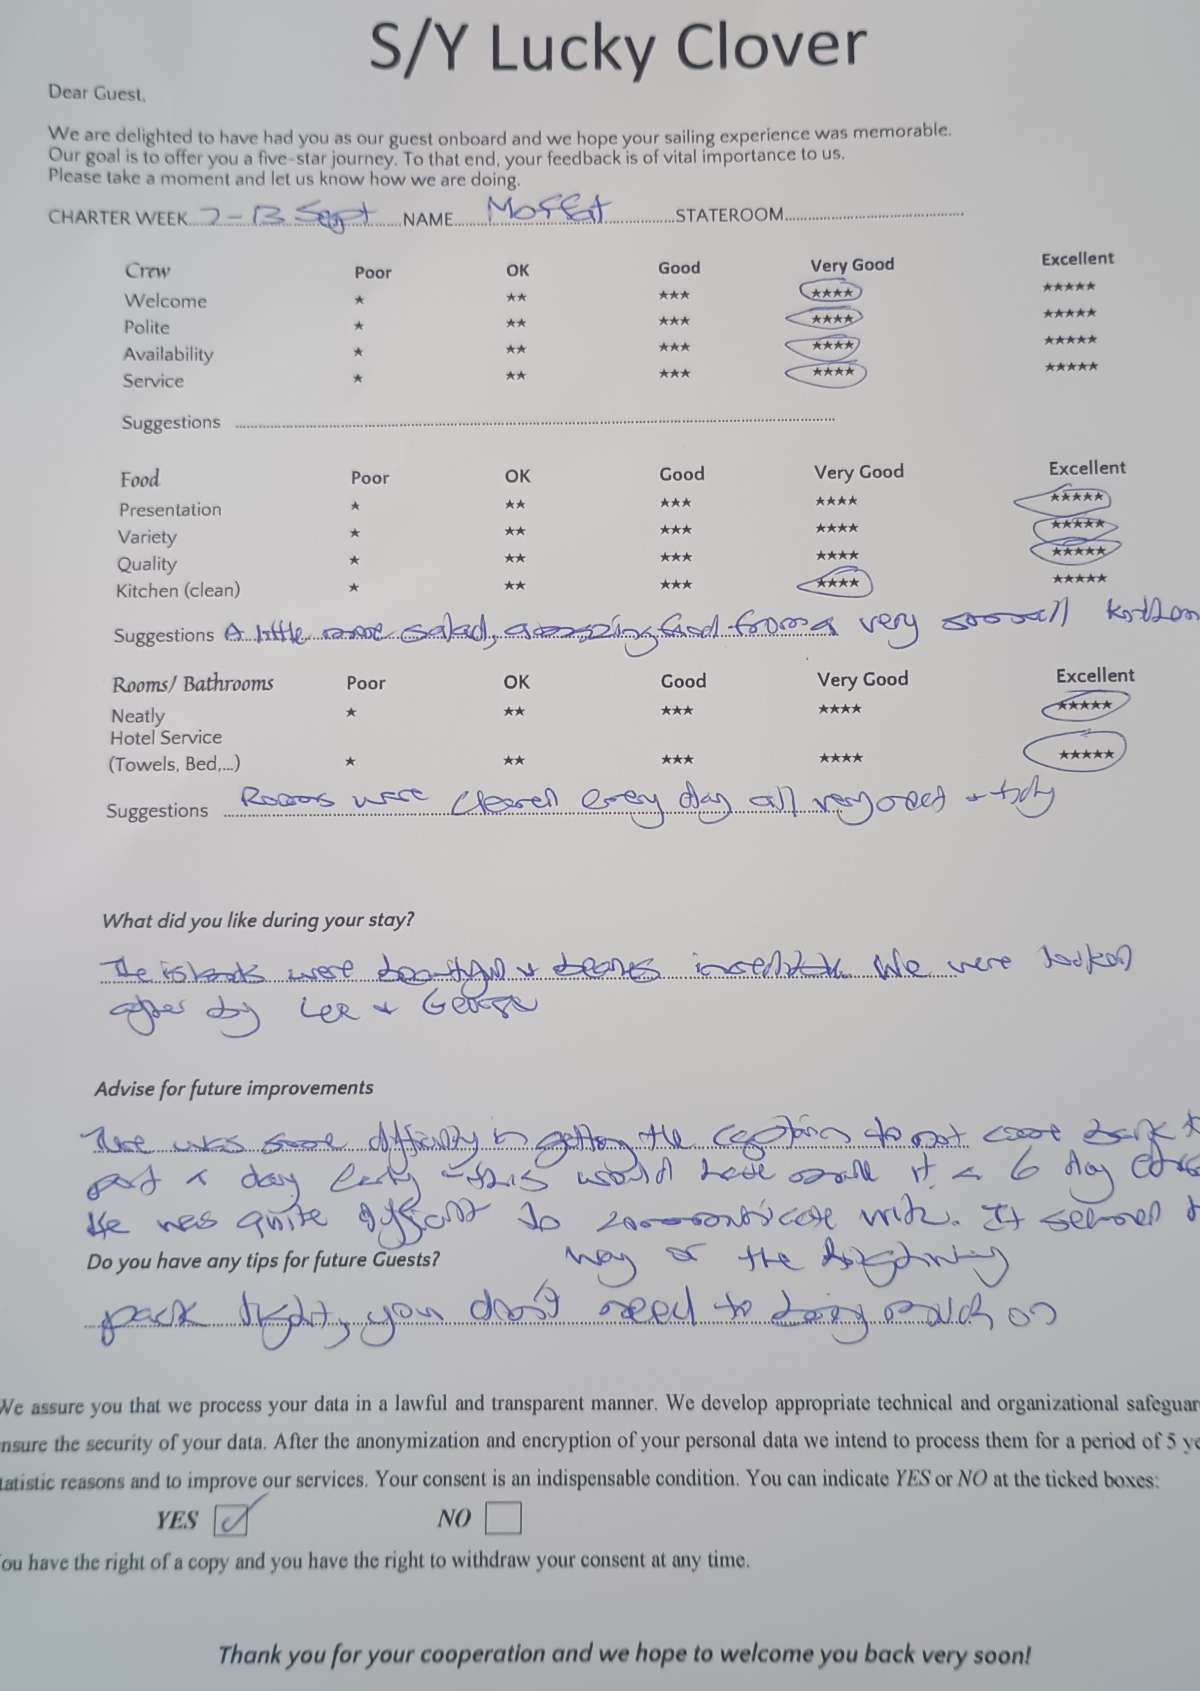 S/Y Lucky Clover
Dear Guest,
We are delighted to have had you as our guest onboard and we hope your sailing experience was memorable.
Our goal is to offer you a five-star journey. To that end, your feedback is of vital importance to us.
Please take a moment and let us know how we are doing.
CHARTER WEEK 7-13 Sept NAME Moffat STATEROOM
Crew Poor OK Good Very Good Excellent
Welcome ★ ★★ ★★★ ★★★★ ★★★★★
Polite ★ ★★ ★★★ ★★★★ ★★★★★
Availability ★ ★★ ★★★ ★★★★ ★★★★★
Service ★ ★★ ★★★ ★★★★ ★★★★★
Suggestions
Food Poor OK Good Very Good Excellent
Presentation ★ ★★ ★★★ ★★★★ ★★★★★
Variety ★ ★★ ★★★ ★★★★ ★★★★★
Quality ★ ★★ ★★★ ★★★★ ★★★★★
Kitchen (clean) ★ ★★ ★★★ ★★★★ ★★★★★
Suggestions A little more salad, amazing food from a very small kitchen
Rooms/ Bathrooms Poor OK Good Very Good Excellent
Neatly ★ ★★ ★★★ ★★★★ ★★★★★
Hotel Service
(Towels, Bed,...) ★ ★★ ★★★ ★★★★ ★★★★★
Suggestions Rooms were cleaned every day all very neat + tidy
What did you like during your stay?
The islands were beautiful + beaches incredible. We were looked
after by Lee + George
Advise for future improvements
There was some difficulty in getting the captain to not come back to
port a day early - this would have made it a 6 day
He was quite difficult to communicate with. It seemed
way or the highway
Do you have any tips for future Guests?
pack light, you don't need to bring much on
We assure you that we process your data in a lawful and transparent manner. We develop appropriate technical and organizational safeguar
nsure the security of your data. After the anonymization and encryption of your personal data we intend to process them for a period of 5 ye
tatistic reasons and to improve our services. Your consent is an indispensable condition. You can indicate YES or NO at the ticked boxes:
YES NO
ou have the right of a copy and you have the right to withdraw your consent at any time.
Thank you for your cooperation and we hope to welcome you back very soon!